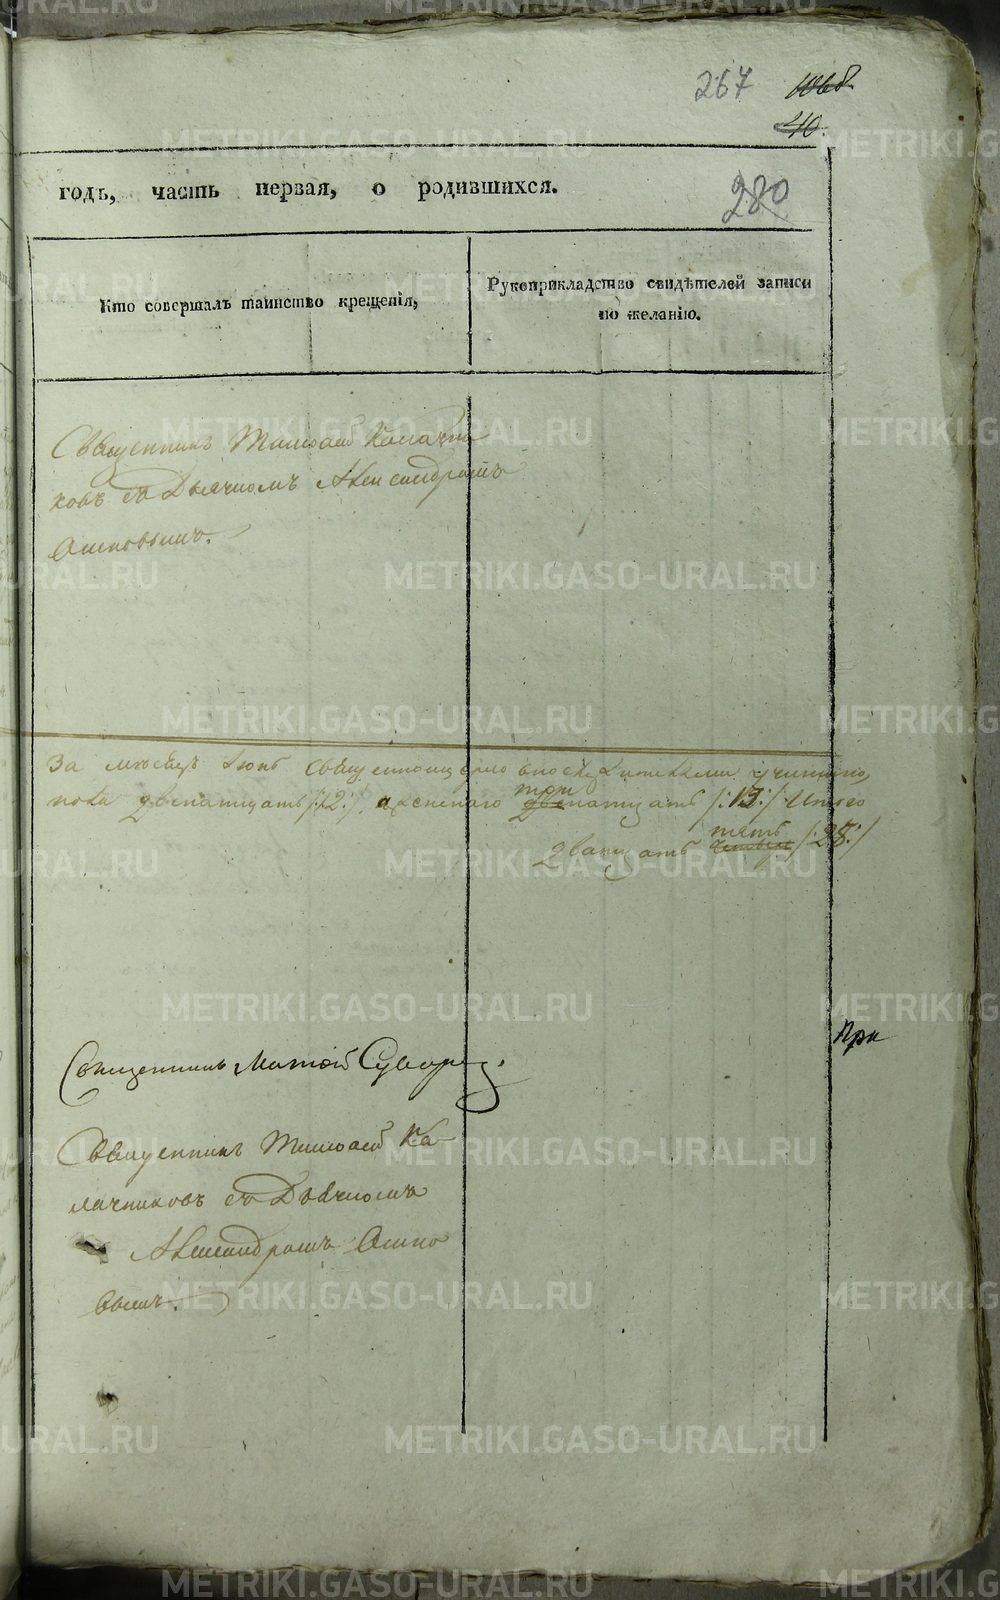 267 1068
40
годъ, часть первая, о родившихся.
280
Кто совершалъ таинство крещенія,
Рукоприкладство свидѣтелей записи
по желанію.
Священникъ Тимоѳей Калачни
ковъ съ Дьячкомъ Александромъ
Осиповымъ.
За мѣсяцъ Іюнь Священноцерко
мужеска пола двенатцать /:12:/, женскаго три двенатцать /:13:/ Итого
двацать пять четыре /:25:/
При
Священникъ Матѳей Суворовъ.
Священникъ Тимоѳей Ка
лачниковъ съ Дьячкомъ
Александромъ Осипо
вымъ.
METRIKI.GASO-URAL.RU